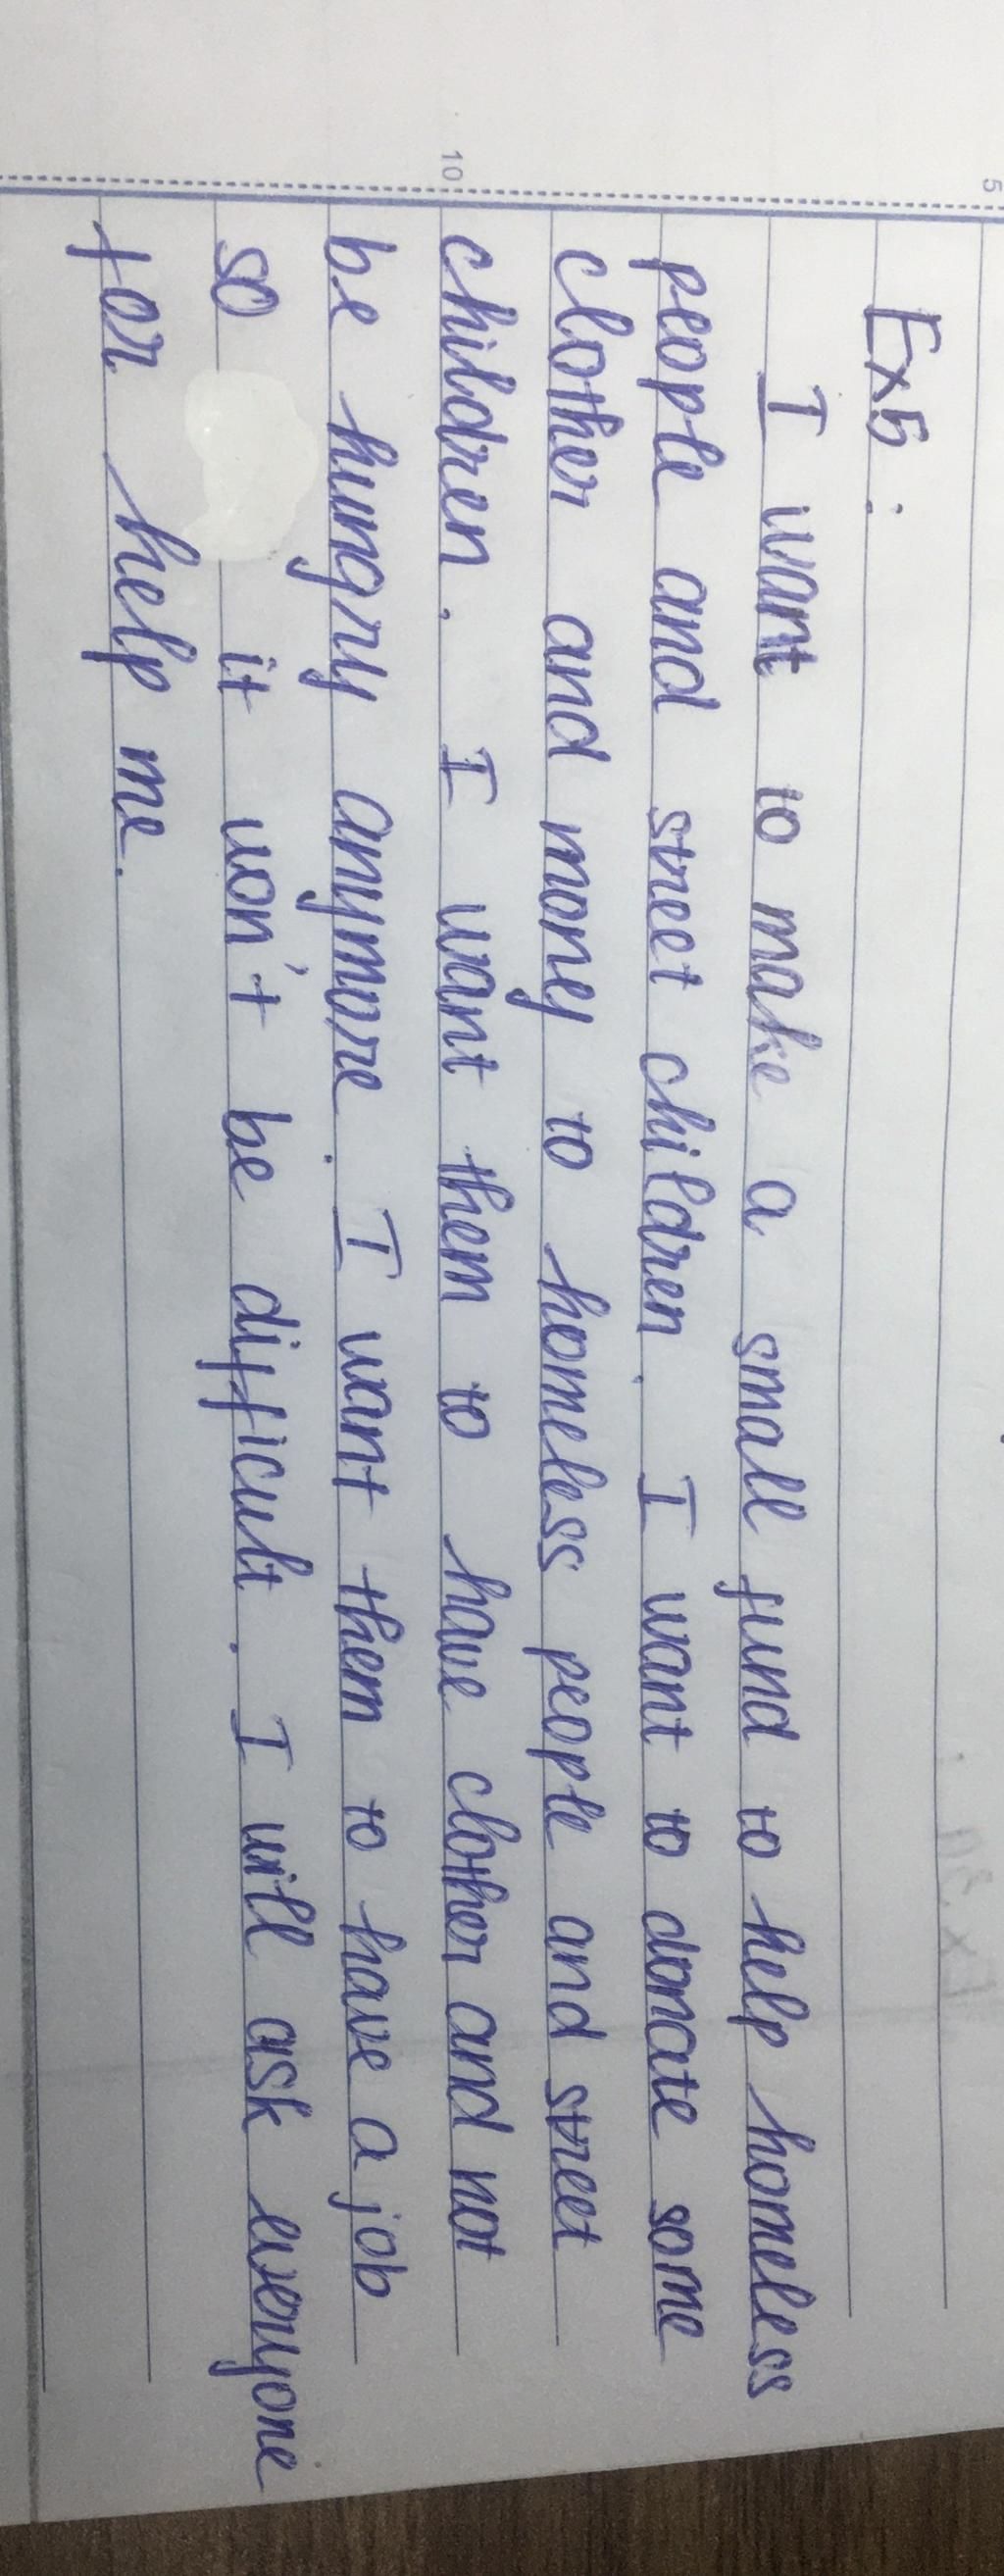 5
Ex5:
I want to make a small fund to help homeless
people and street children. I want to donate some
clother and money to homeless people and street
10
children. I want them to have clother and not
be hungry anymore. I want them to have a job
so it won't be difficult. I will ask everyone
for help me.